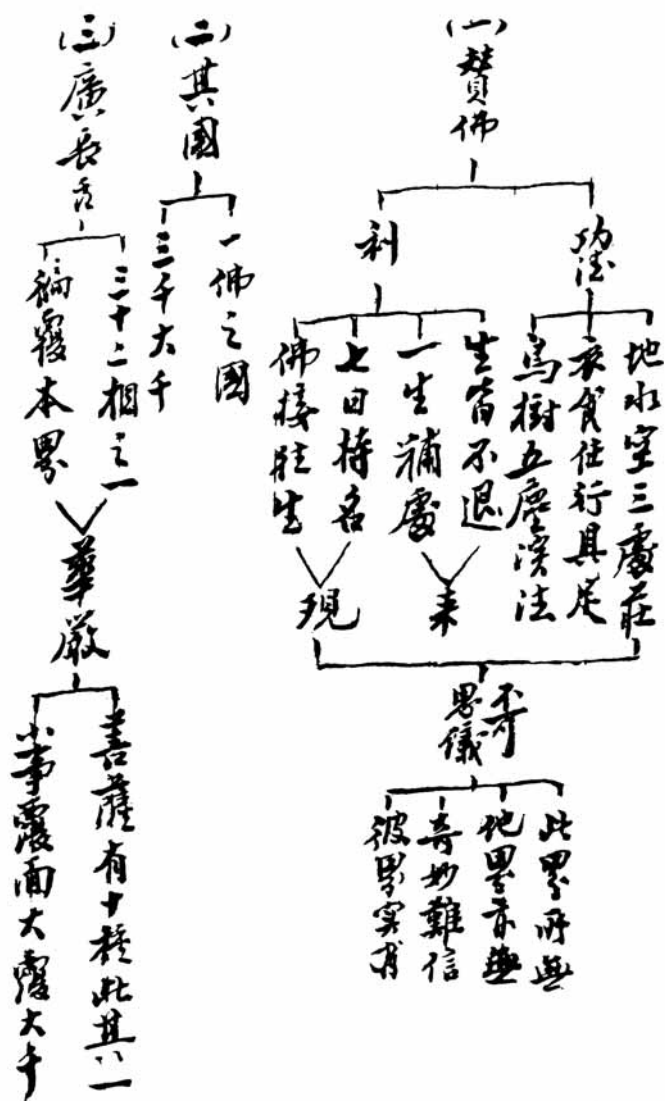 (一)贊佛
功德
地水空三處莊
衣食住行具足
鳥樹五塵演法
利
生皆不退
一生補處
來
七日持名
佛接往生
現
不可
思儀
此界所無
他界亦無
奇妙難信
彼界實有
(二)其國
一佛之國
三千大千
(三)廣長舌
三十二相之一
徧覆本界
華嚴
菩薩有十種此其一
小事覆面大覆大千